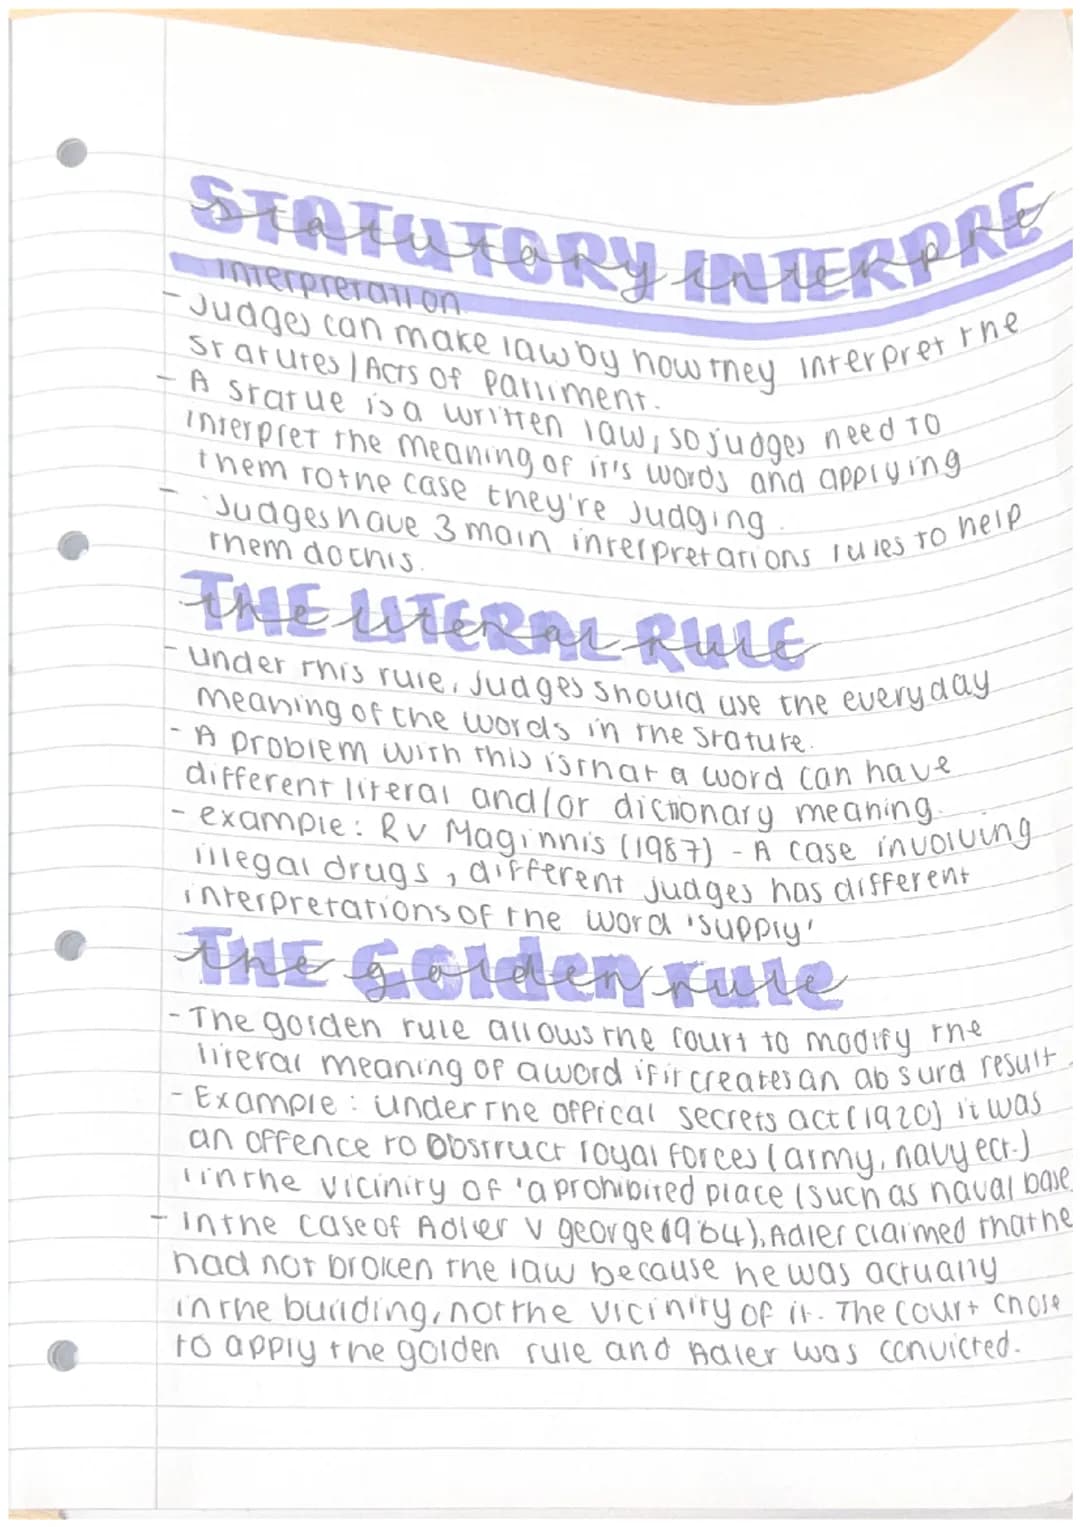 STATUTORY INTERPRE
statutory interpre
Interpretation
- Judges can make law by how they interpret the
statutes / Acts of Parliment.
- A statue is a written law, so judges need to
interpret the meaning of it's words and applying
them to the case they're Judging.
- Judges have 3 main interpretations rules to help
them do this.
THE LITERAL RULE
the literal rule
- under this rule, Judges should use the everyday
meaning of the words in the stature.
- A problem with this is that a word can have
different literal and/or dictionary meaning.
- example: R v Maginnis (1987) - A case involving
illegal drugs, different judges has different
interpretations of the word 'supply'
THE Golden rule
the golden rule
- The golden rule allows the court to modify the
literal meaning of a word if it creates an absurd result.
- Example: under the offical secrets act (1920) it was
an offence to Obstruct royal forces (army, navy ect.)
in the vicinity of 'a prohibited place (such as naval base
- In the case of Adler V george (1964), Adler claimed that he
had not broken the law because he was actually
in the building, not the vicinity of it. The court chose
to apply the golden rule and Adler was convicted.